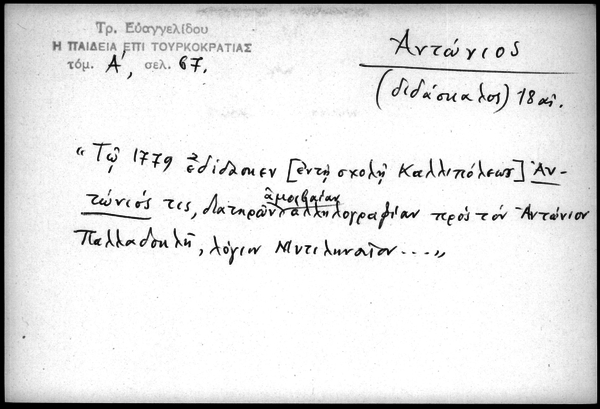 Τρ. Εὐαγγελίδου
Η ΠΑΙΔΕΙΑ ΕΠΙ ΤΟΥΡΚΟΚΡΑΤΙΑΣ
τόμ. Α', σελ. 67.
Ἀντώνιος
(διδάσκαλος) 18 αἰ.
"Τῷ 1779 ἐδίδασκεν [ἐν τῇ σχολῇ Καλλιπόλεως] Ἀν-
τώνιός τις, διατηρῶν ἀμοιβαίαν ἀλληλογραφίαν πρὸς τὸν Ἀντώνιον
Παλλαδοκλῆ, λόγιον Μυτιληναῖον....„